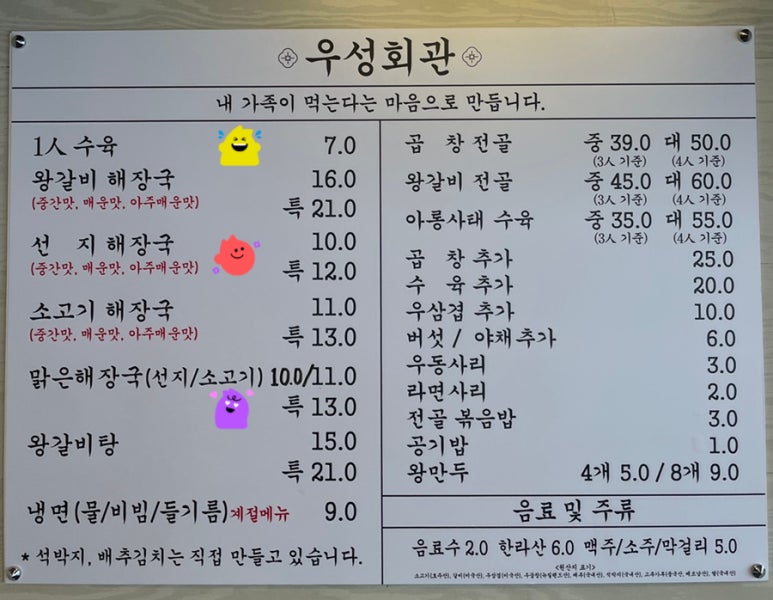 우성회관
내 가족이 먹는다는 마음으로 만듭니다.
1人 수육 7.0
왕갈비 해장국 16.0
(중간맛, 매운맛, 아주매운맛) 특 21.0
선 지 해장국 10.0
(중간맛, 매운맛, 아주매운맛) 특 12.0
소고기 해장국 11.0
(중간맛, 매운맛, 아주매운맛) 특 13.0
맑은해장국(선지/소고기) 10.0/11.0
특 13.0
왕갈비탕 15.0
특 21.0
냉면(물/비빔/들기름)계절메뉴 9.0
* 석박지, 배추김치는 직접 만들고 있습니다.
곱 창 전골 중 39.0 대 50.0
(3人 기준) (4人 기준)
왕갈비 전골 중 45.0 대 60.0
(3人 기준) (4人 기준)
아롱사태 수육 중 35.0 대 55.0
(3人 기준) (4人 기준)
곱 창 추가 25.0
수 육 추가 20.0
우삼겹 추가 10.0
버섯 / 야채추가 6.0
우동사리 3.0
라면사리 2.0
전골 볶음밥 3.0
공기밥 1.0
왕만두 4개 5.0 / 8개 9.0
음료 및 주류
음료수 2.0 한라산 6.0 맥주/소주/막걸리 5.0
<원산지 표기>